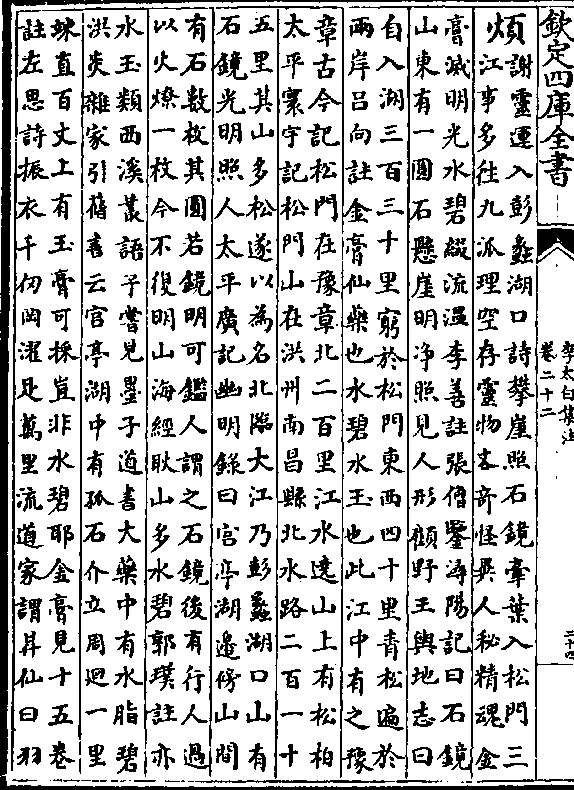 欽定四庫全書
李太白集注
卷二十二
二十四
煩
謝靈運入彭蠡湖口詩攀崖照石鏡牽葉入松門三
江事多往九派理空存靈物吝奇怪異人秘精魂金
膏滅明光水碧綴流溫李善註張僧鑒潯陽記曰石鏡
山東有一圓石懸崖明净照見人形顧野王輿地志曰
自入湖三百三十里窮於松門東西四十里青松遍於
兩岸呂向註金膏仙藥也水碧水玉也此江中有之豫
章古今記松門在豫章北二百里江水遶山上有松柏
太平寰宇記松門山在洪州南昌縣北水路二百一十
五里其山多松遂以為名北臨大江乃彭蠡湖口山有
石鏡光明照人太平廣記幽明錄曰宫亭湖邊傍山間
有石數枚其圓若鏡明可鑑人謂之石鏡後有行人過
以火燎一枚今不復明山海經耿山多水碧郭璞註亦
水玉類西溪叢語予嘗見墨子道書大藥中有水脂碧
洪炎雜家引舊書云宫亭湖中有孤石介立周迴一里
竦直百丈上有玉膏可採豈非水碧耶金膏見十五卷
註左思詩振衣千仞岡濯足萬里流道家謂昇仙曰羽